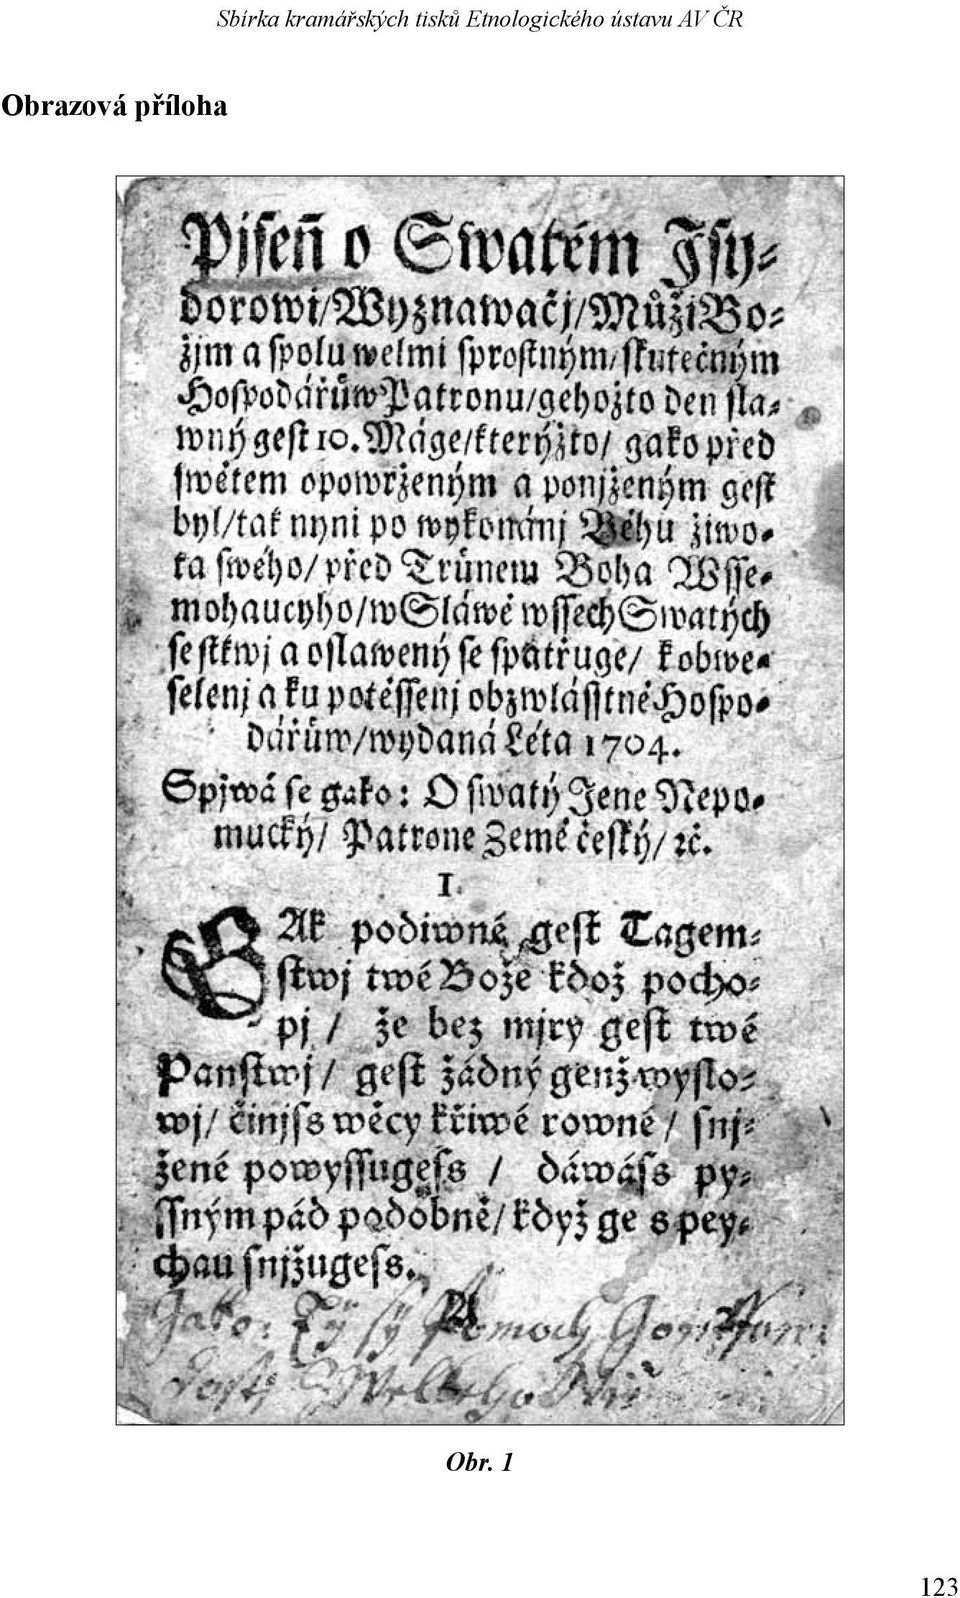 Sbírka kramářských tisků Etnologického ústavu AV ČR
Obrazová příloha
Pjseň o Swatém Jsy-
dorowi/Wyznawačj/Můži Bo-
žjm a spolu welmi sprostným/skutečným
Hospodářůw Patronu/gehožto den sla-
wný gest 10. Máge/kterýžto/ gako před
swětem opowrženým a ponjženým gest
byl/tak nyni po wykonánj Běhu žiwo-
ta swého/před Trůnem Boha Wsse-
mohaucyho/w Sláwě wssech Swatých
se stkwj a oslawený se spatřuge/ k obwe-
selenj a ku potěssenj obzwlásstně Hospo-
dářům/wydaná Léta 1704.
Spjwá se gako: O swatý Jene Nepo-
mucký/ Patrone Země český/ ꝛč.
1.
GAk podiwné gest Tagem-
stwj twé Bože kdož pocho-
pj / že bez mjry gest twé
Panstwj / gest žádný genž wyslo-
wj/ činjss wěcy křiwé rowné / snj-
žené powyssugess / dáwáss py-
ssným pád podobně/ když ge s pey-
chau snjžugess.
Obr. 1
123